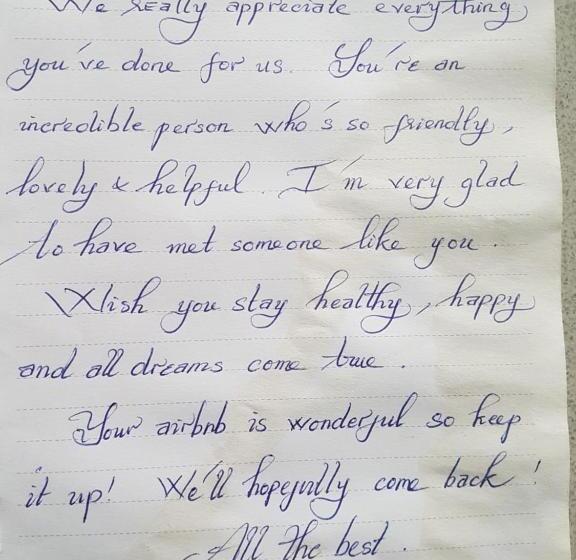 We really appreciate everything
you've done for us. You're an
incredible person who's so friendly,
lovely & helpful. I'm very glad
to have met someone like you.
Wish you stay healthy, happy
and all dreams come true.
Your airbnb is wonderful so keep
it up! We'll hopefully come back!
All the best.